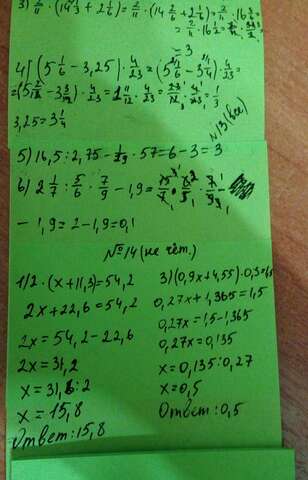 3) 2/11 · (14 2/6 + 2 1/6) = 2/11 · (14 2/6 + 2 1/6) = 2/11 · 16
= 2/11 · 16 1/2 =
= 3
4) (5 1/6 − 3,25) · 4/23 = (5 1/6 − 3 1/4) · 4/23 =
= (5 2/12 − 3 3/12) · 4/23 = 1 11/12 · 4/23 = 23/12 · 4/23 = 1/3
3,25 = 3 1/4
№13 (все)
5) 16,5 : 2,75 − 1/19 · 57 = 6 − 3 = 3
6) 2 1/7 : 5/6 · 7/9 − 1,9 = 15/7 · 6/5 · 7/9 −
− 1,9 = 2 − 1,9 = 0,1
№14 (не чёт.)
1) 2 · (x + 11,3) = 54,2
2x + 22,6 = 54,2
2x = 54,2 − 22,6
2x = 31,2
x = 31,6 : 2
x = 15,8
Ответ: 15,8
3) (0,9x + 4,55) · 0,3 = 1,5
0,27x + 1,365 = 1,5
0,27x = 1,5 − 1,365
0,27x = 0,135
x = 0,135 : 0,27
x = 0,5
Ответ: 0,5